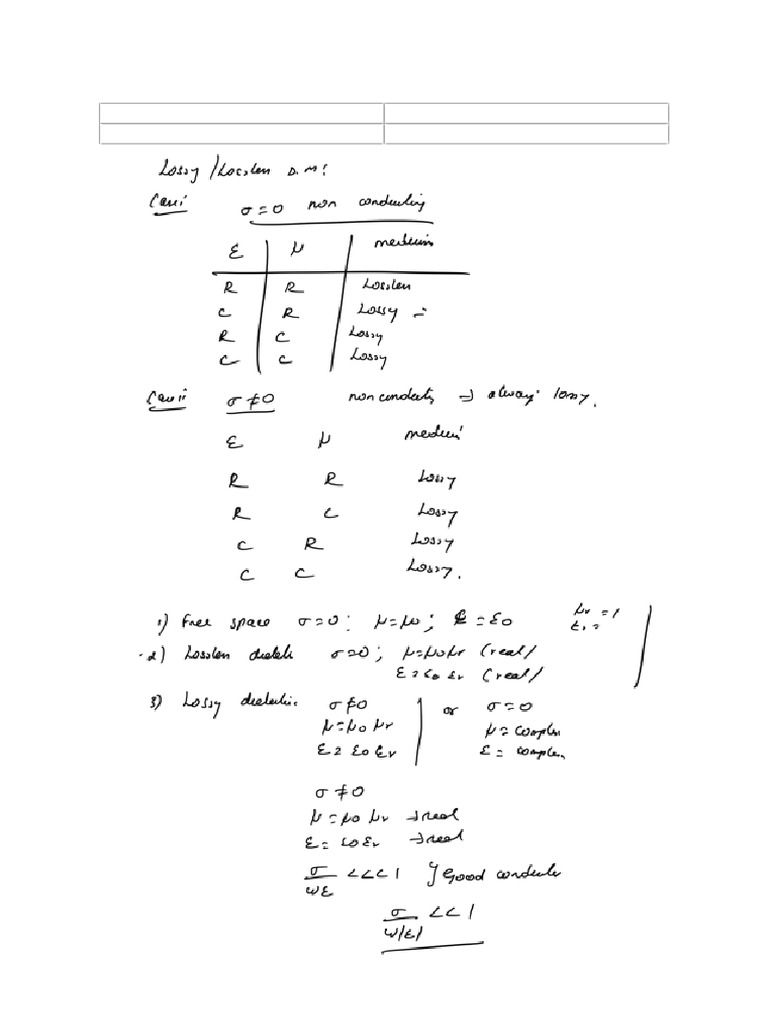 Lossy / Lossless D.M:
Case i σ=0 non conducting
ε μ medium
R R Lossless
C R Lossy =
R C Lossy
C C Lossy
Case ii σ≠0 non conducting → always lossy.
ε μ medium
R R Lossy
R C Lossy
C R Lossy
C C Lossy.
1) Free space σ=0; μ=μ0; ε=ε0 μr=1
εr=
2) Lossless dielectric σ=0; μ=μ0μr (real)
ε=ε0εr (real)
3) Lossy dielectric σ≠0 or σ=0
μ=μ0μr μ=complex
ε=ε0εr ε=complex
σ≠0
μ=μ0μr → real
ε=ε0εr → real
σ/ωε <<< 1 } Good conductor
σ/ω|ε| << 1